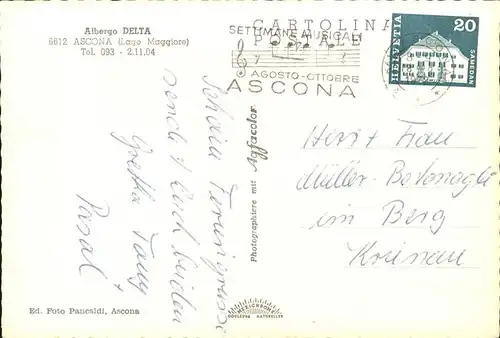 Albergo DELTA
6612 ASCONA (Lago Maggiore)
Tel. 093 - 2.11.04
CARTOLINA
POSTALE
SETTIMANE MUSICALI
AGOSTO-OTTOBRE
ASCONA
HELVETIA
20
SAMEDAN
Schöni Feriengrüsse
sendet Euch beiden
Gretha Tony
+
Pasal
Photographiere mit Agfacolor
Herr + Frau
Müller-
im Berg
Krinau
Ed. Foto Pancaldi, Ascona
MEXICHROM